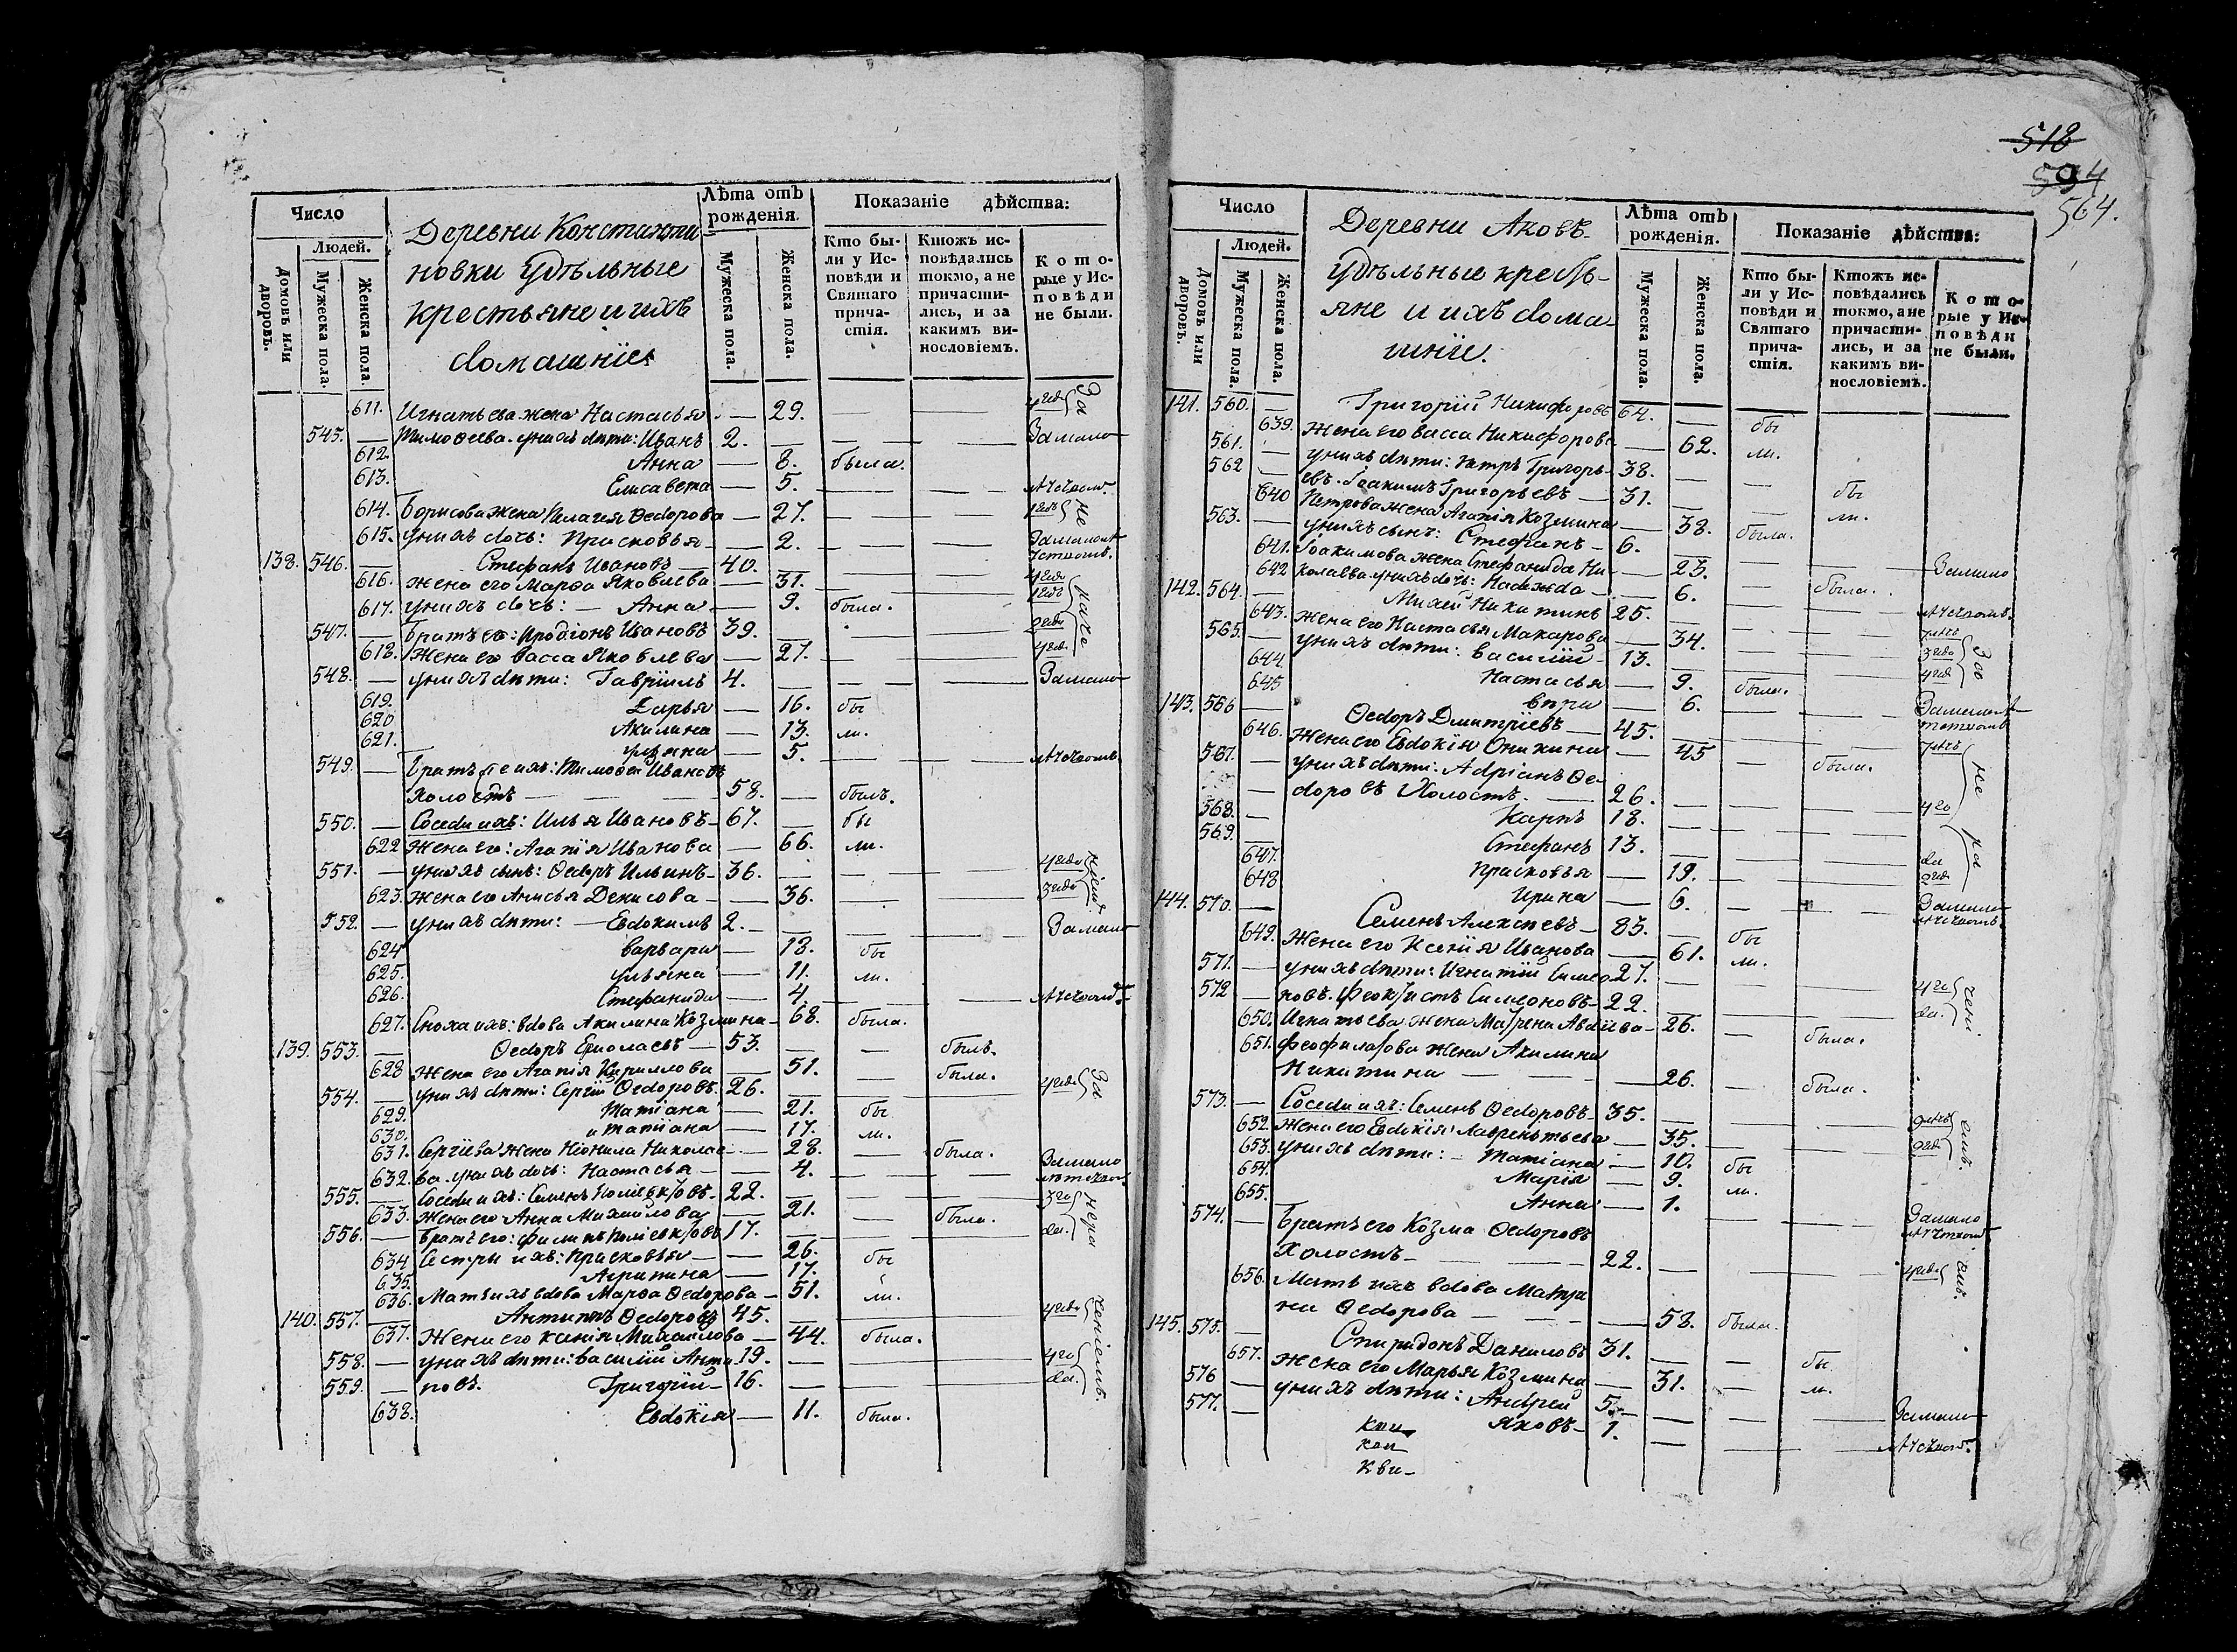 518
594
564.
Число
Людей.
Домовъ или дворовъ.
Мужеска пола.
Женска пола.
Деревни Константи-
новки удѣльные
крестьяне и ихъ
домашніе
Лѣта отъ рожденія.
Мужеска пола.
Женска пола.
Показаніе дѣйства:
Кто бы-
ли у Ис-
повѣди и
Святаго
прича-
стія.
Ктожъ ис-
повѣдались
токмо, а не
причасти-
лись, и за
какимъ ви-
нословіемъ.
Кото-
рые у Ис-
повѣди
не были.
611. Игнатьева жена Настасья — 29. За
545. Тимофеева. у нихъ дѣти: Иванъ 2. — Замало
612. Анна — 8. была.
613. Елисавета — 5.
614. Борисова жена Пелагея Ѳедорова — 27. не
615. у нихъ дочь: Прасковья — 2.
138. 546. Стефанъ Ивановъ — 40.
616. жена его Марѳа Яковлева — 31.
617. у нихъ дочь: — Анна — 9. была.
547. Братъ его: Иродіонъ Ивановъ 39.
618. Жена его Васса Яковлева — 27.
548. у нихъ дѣти: Гавріилъ 4. Замало
619. Дарья — 16. бы
620 Акилина — 13. ли.
621. Ульяна — 5.
549. Братъ ихъ: Тимофей Ивановъ
холостъ — 58. — былъ.
550. Соседи ихъ: Илья Ивановъ — 67. — бы
622 Жена его: Агапія Иванова — 66. ли.
551. у нихъ сынъ: Ѳедоръ Ильинъ — 36.
623. Жена его Анисья Денисова — 36.
552. у нихъ дѣти: — Евдокимъ 2. Замало
624 Варвара — 18. бы
625. Ульяна — 11. ли.
626. Стефанида — 4.
627. Сноха ихъ: вдова Акилина Козмина — 68. была.
139. 553. Ѳедоръ Ермолаевъ — 53. — былъ.
628 Жена его Агапія Кириллова — 51. — была.
554. у нихъ дѣти: Сергій Ѳедоровъ. 26. За
629. Татіана — 21. бы
630. и Татіана — 17. ли.
631. Сергіева жена Неонила Николае- — 28. — была.
632. ва. у нихъ дочь: Настасья — 4. Замало
555. Соседи ихъ: Семенъ 22.
633. Жена его Анна Михайлова — 21. — была.
556. Братъ его: Филипъ 17.
634 Сестры ихъ: Прасковья — 26. бы
635. Агрипина — 17.
636. Мать ихъ вдова Марѳа Ѳедорова — 51. ли.
140. 557. Антипъ Ѳедоровъ 45.
637. Жена его Ксенія Михайлова — 44. была.
558. у нихъ дѣти: Василій Анти 19.
559. повъ. Григорій — 16.
638. Евдокія — 11. была.
Число
Людей.
Домовъ или дворовъ.
Мужеска пола.
Женска пола.
Деревни Аковъ-
удѣльные кресть-
яне и ихъ дома
шніе.
Лѣта отъ рожденія.
Мужеска пола.
Женска пола.
Показаніе дѣйства:
Кто бы-
ли у Ис-
повѣди и
Святаго
прича-
стія.
Ктожъ ис-
повѣдались
токмо, а не
причасти-
лись, и за
какимъ ви-
нословіемъ.
Кото-
рые у Ис-
повѣди
не были.
141. 560. Григорій Никифоровъ 64. — бы
639. жена его Васса Никифорова — 62. ли.
561. у нихъ дѣти: Петръ Григорь- 38. — бы
562 евъ. Іоакимъ Григорьевъ — 31. — ли.
640 Петрова жена Агапія Козмина — 38. была.
563. у нихъ сынъ: Стефанъ — 6. Замало
641. Іоакимова жена Стефанида Ни- — 23. — была.
642 колаева у нихъ дочь: Надежда — 6.
142. 564. Михей Никитинъ 25.
643. Жена его Настасья Макарова — 34.
565. у нихъ дѣти: Василій — 13.
644. Настасья — 9. была.
645 Вѣра — 6.
143. 566 Ѳедоръ Дмитріевъ — 45.
646. Жена его Евдокія Оникина — 45 — была.
567. у нихъ дѣти: Адріанъ Ѳе-
доровъ Холостъ. — 26.
568. Карпъ 18.
569. Стефанъ 13.
647. Прасковья — 19.
648 Ирина — 6. Замало
144. 570. Семенъ Алексѣевъ — 83. — бы
649. Жена его Ксенія Иванова — 61. ли.
571. у нихъ дѣти: Игнатій Симео 27.
572 новъ. Феоктистъ Симеоновъ — 22.
650. Игнатьева жена Матрена Авдіева — 26. — была.
651. жена Акилина
Никитина — 26. — была.
573. Соседи ихъ: Семенъ Ѳедоровъ — 35.
652. Жена его Евдокія Лаврентьева — 35.
653. у нихъ дѣти: — Татіана — 10. бы
654. Марія — 9. ли.
655. Анна — 1. Замало
574. Братъ его Козма Ѳедоровъ
Холостъ — 22.
656. Мать ихъ вдова Матре
на Ѳедорова — 58. была.
145. 575. Спиридонъ Даниловъ 31. — бы.
657. жена его Марья Козмина — 31. — ли.
576 у нихъ дѣти: Андрей 5. — Замало
577. Яковъ — 1.